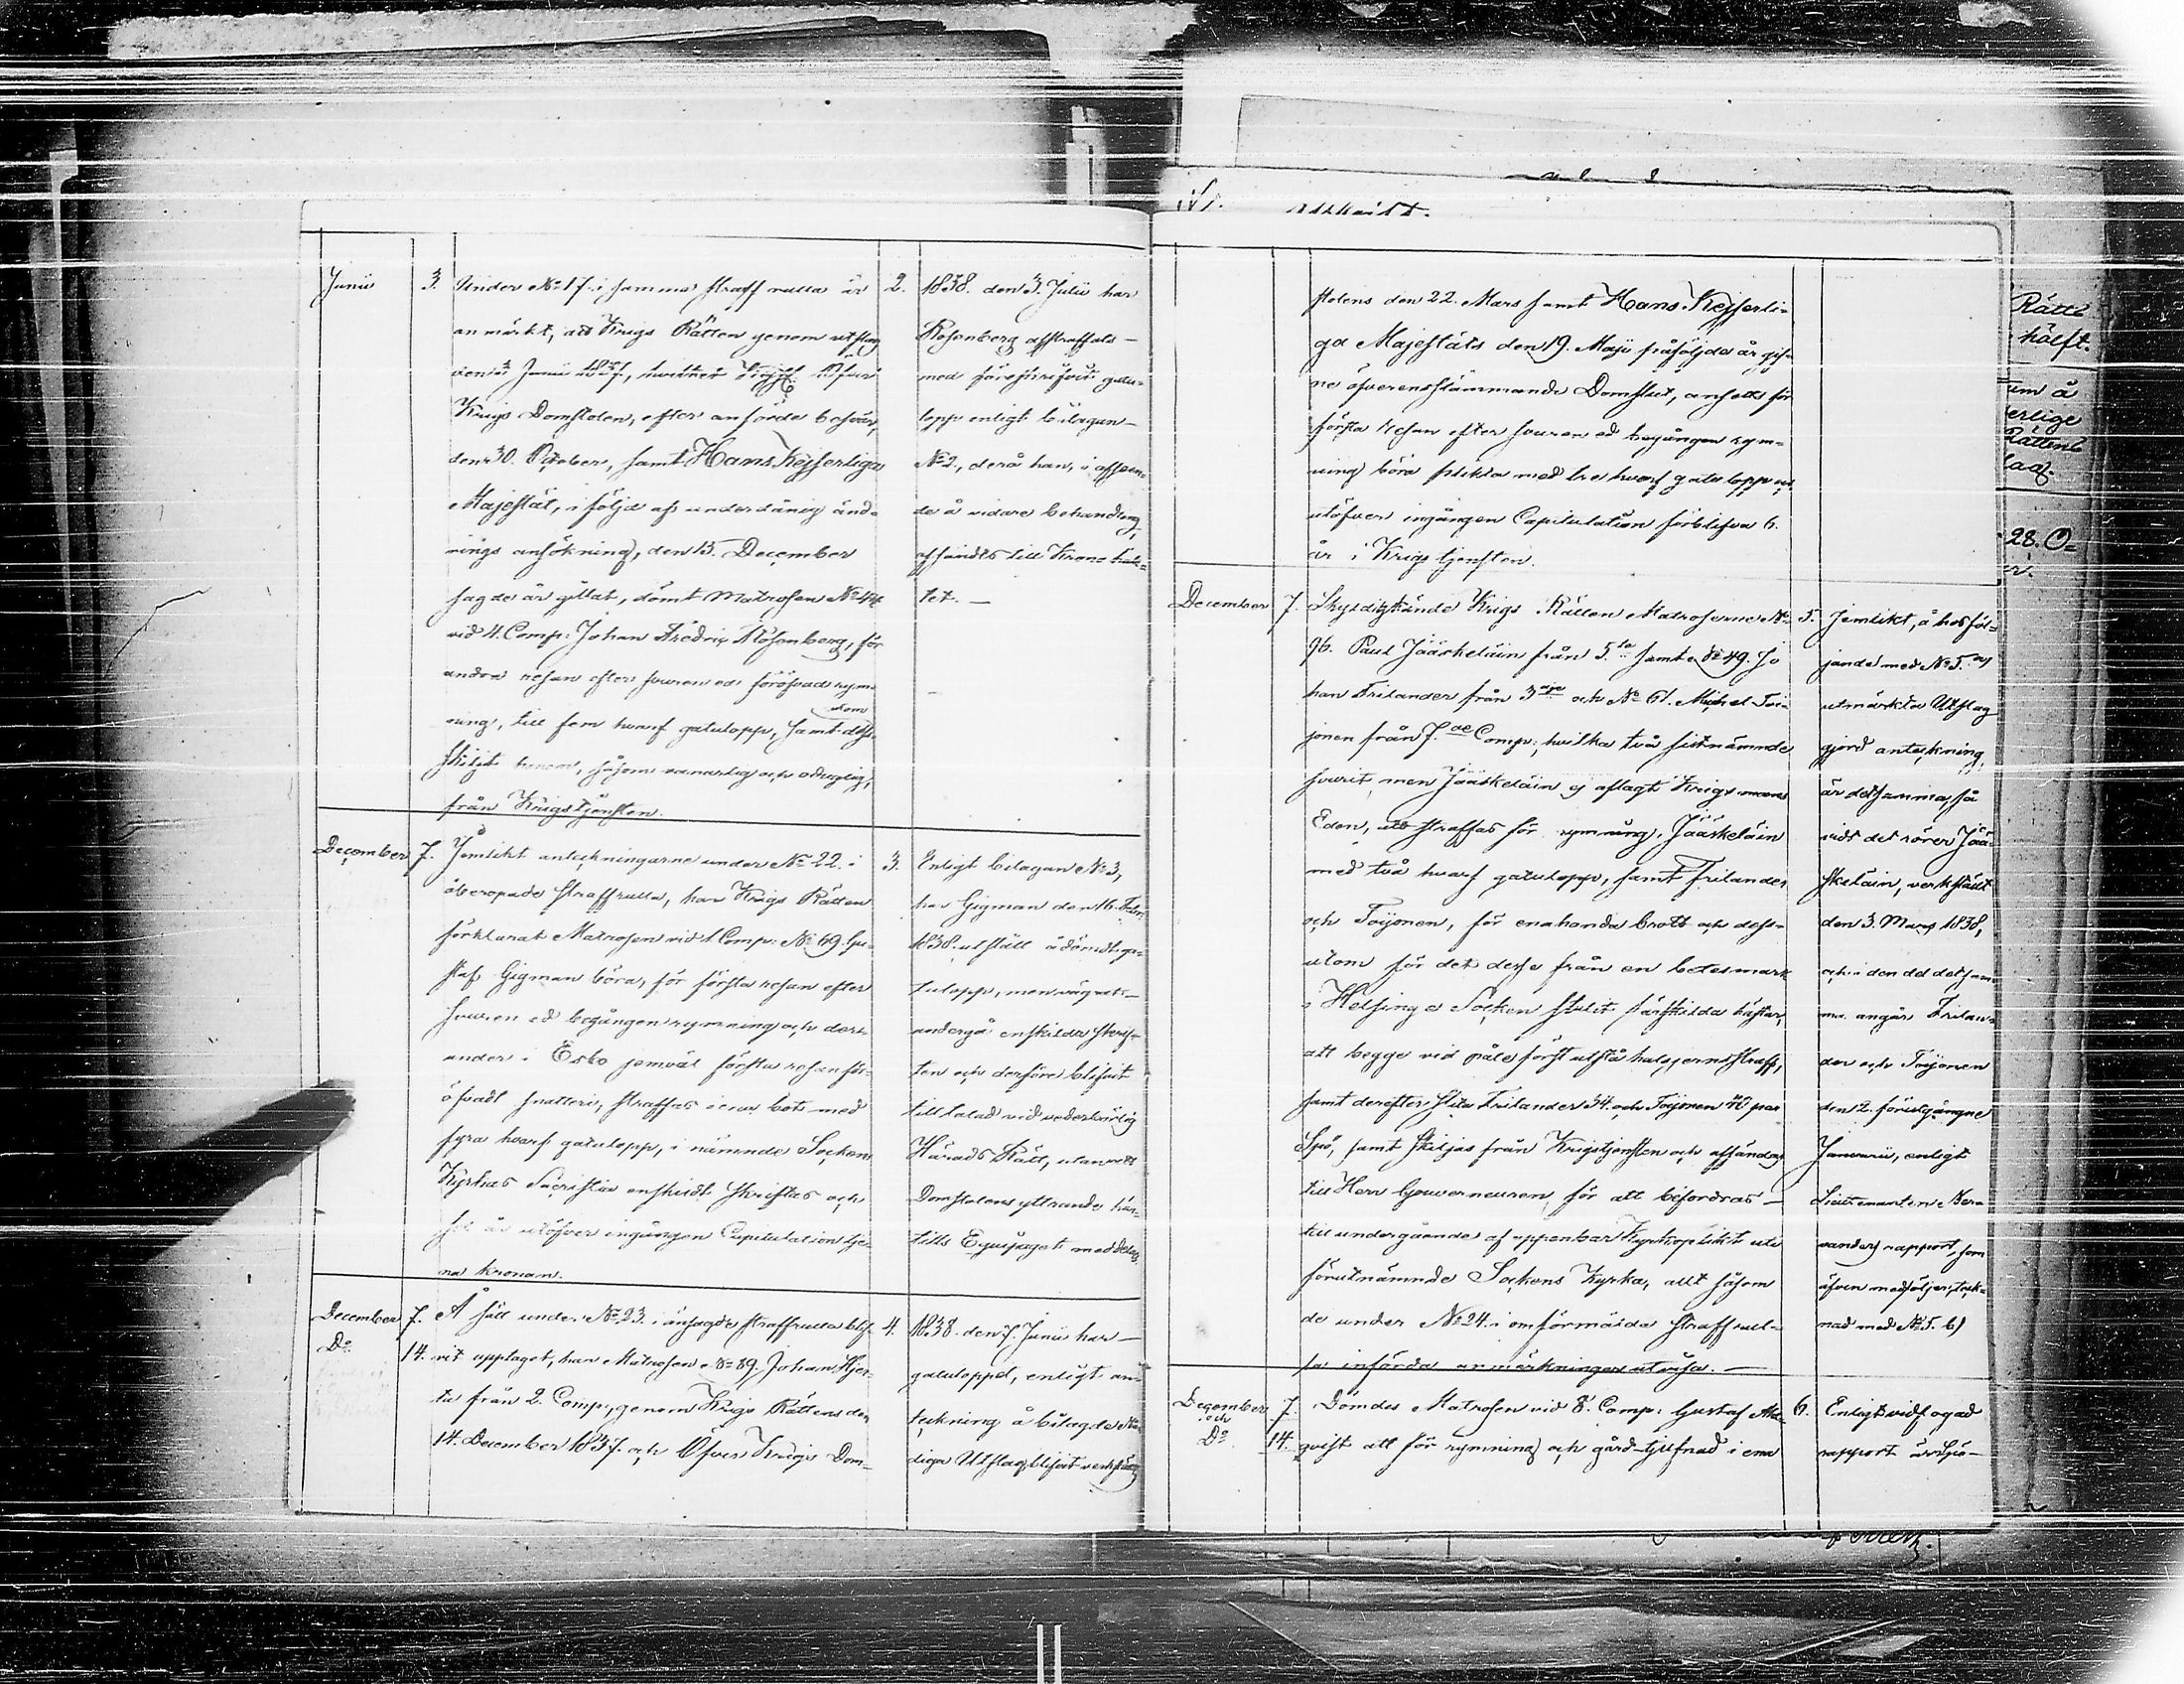 Junii 3. Under No 17. i samma straff rulla är 2.
anmärkt, att Krigs Rätten genom utslag
den 3 Junii 1837, hvilket Öfver
Krigs Domstolen, efter anförde besvär,
den 30. October, samt Hans Kejserliga
Majestät, i följd af underdånig änd-
rings ansökning, den 15. December
sagde år gillat, dömt Matrosen No 44
vid 4. Comp: Johan Fredric Rosenberg, för
andra resan efter svuren ed föröfvad rym-
ning, till fem hvarf gatulopp, samt dess-
utom
skiljt honom, såsom vanartig och oduglig,
från Krigstjensten.
1838. den 3. Julii har
Rosenberg afstraffats
med föreskrifvit gatu-
lopp enligt bilagan
No 2., derå han, i afseen-
de å vidare behandling,
afsändts till Krono häk-
tet. —
December 7. Jemlikt anteckningarne under No 22. i 3.
åberopade straffrulla, har Krigs Rätten
förklarat Matrosen vid 1. Comp: No 69. Gu-
staf Gigman böra, för första resan efter
svuren ed begången rymning och der-
under i Esbo jemväl första resan för-
öfvadt snatteri, straffas i ena bot med
fyra hvarf gatulopp, i nämnde Sockens
Kyrkas Sacristia enskildt skriftas och
sex år utöfver ingången Capitulation tje-
na kronan.
Enligt bilagan No 3,
har Gigman den 16. Febr.
1838. utstått ådömdt ga-
tulopp, men vägrat
undergå enskilda skrif-
ten och derföre blifvit
tilltalad vid vederbörlig
Härads Rätt, utan att
Domstolens yttrande här-
tills Equipaget meddelats.
December 7. Å sätt under No 23. i ansagde straffrulla blif- 4.
Do 14. vit upptaget, har Matrosen No 89. Johan Hjer-
ta från 2. Comp:, genom Krigs Rättens den
14. December 1837. och Öfver Krigs Dom-
1838. den 7. Junii har
gatuloppet, enligt an-
teckning å bilagde
diga Utslag, blifvit verkstäldt
stolens den 22. Mars samt Hans Kejserli-
ga Majestäts den 19. Maji påföljde år gif-
ne öfverensstämmande Domslut, ansetts för
första resan efter svuren ed begången rym-
ning böra plikta med tre hvarf gatulopp och
utöfver ingången Capitulation förblifva 6.
år i Krigstjensten.
December 7. Skyldigkände Krigs Rätten Matroserne No 5.
96. Paul Jääskeläin från 5.te samt No 49. Jo
han Frilander från 3dje och No 61. Michel Toi-
jonen från 7.de Comp:, hvilka två sistnämnde
svurit, men Jääskeläin ej aflagt Krigsmans
Eden, att straffas för rymning, Jääskeläin
med två hvarf gatulopp, samt Frilander
och Toijonen, för enahanda brott och dess-
utom för det desse från en betesmark
i Helsinge Socken stulit särskilda hästar,
att begge vid påle först utstå halsjernsstraff,
samt derefter slita Frilander 34. och Toijonen 40 par
Spö, samt skiljas från Krigstjensten och afsändas
till Herr Gouverneuren, för att befordras
till undergående af uppenbar Kyrkoplikt uti
förutnämnde Sockens Kyrka, allt såsom
de under No 24. i omförmälda straffrul-
la införda anmärkningar utvisa. —
Jemlikt, å hosföl-
jande med No 5. a)
utmärkta Utslag
gjord anteckning,
är detsamma, så
vidt det rörer Jää-
skeläin, verkstäldt
den 3. Mars 1838,
och i den del detsam-
ma angår Frilan-
der och Toijonen
den 2. föregångne
Januarii, enligt
Lieutenanten
rapport, som
äfven medföljer, teck-
nad med No 5. b)
December 7. Dömdes Matrosen vid 8. Comp: Gustaf 6.
och
Do 14. qvist att för rymning och gård-tjufnad i ena
Enligt vidfogad
rapport
Rätts
hälft.
um å
erlige
Rättens
lag.
28. O-